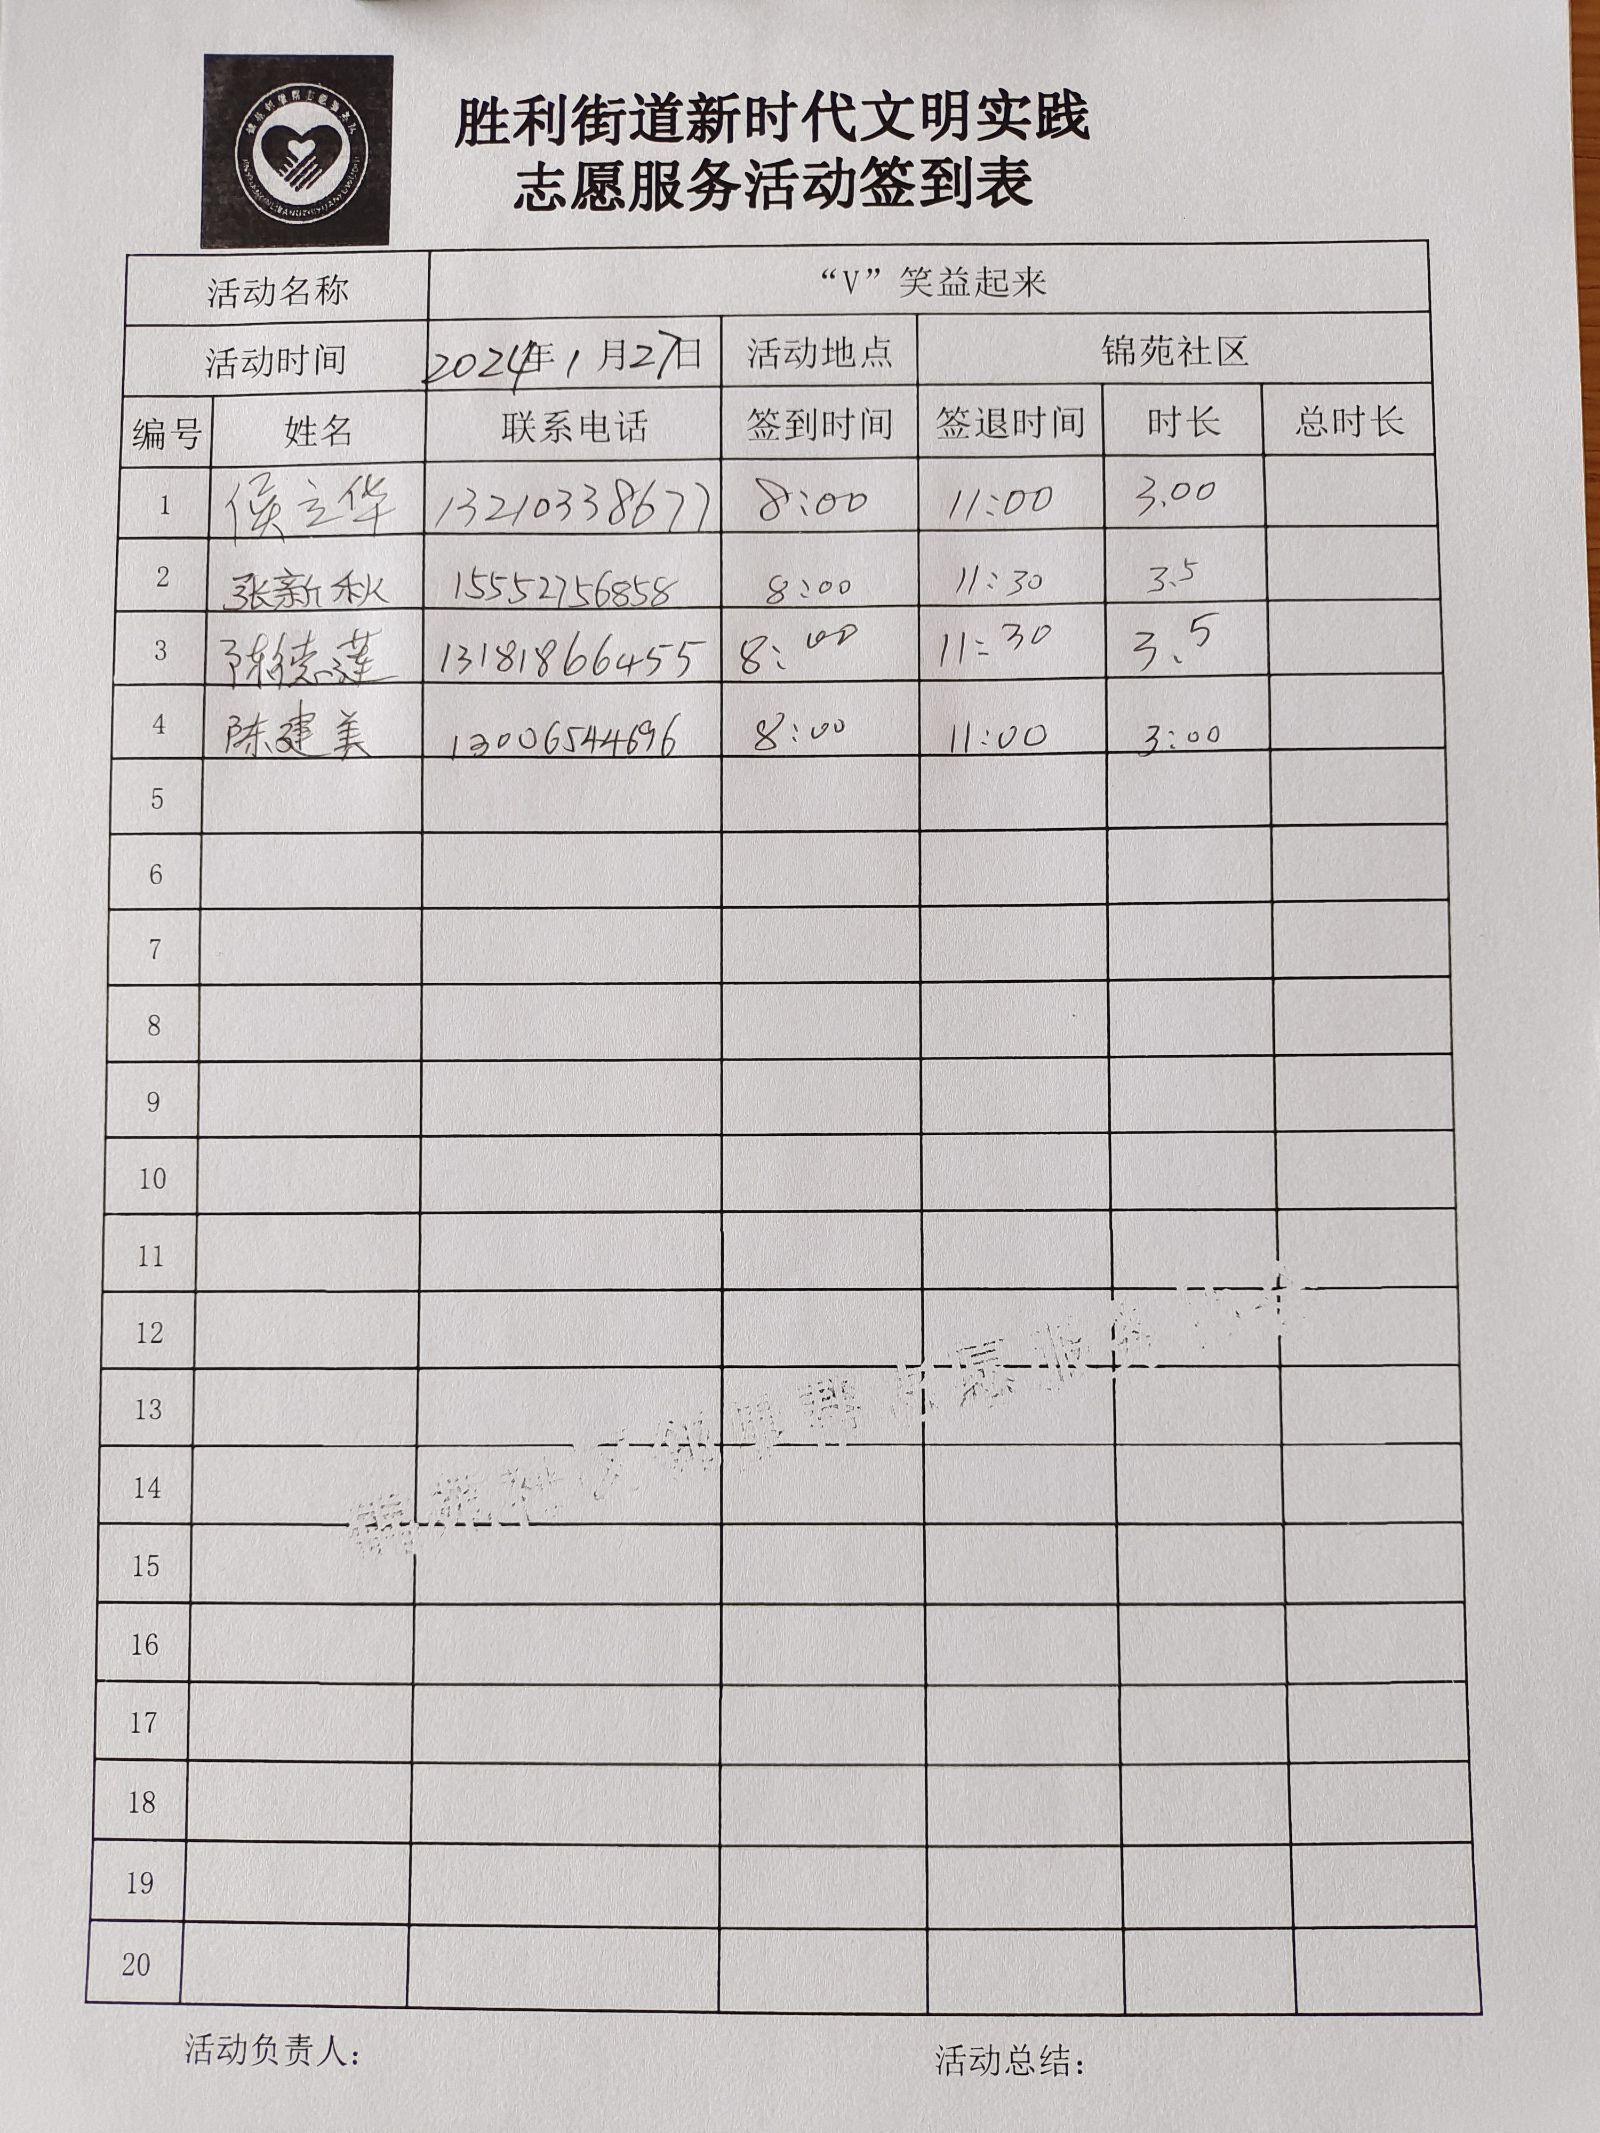 胜利街道新时代文明实践
志愿服务活动签到表
活动名称 “V”笑益起来
活动时间 2024年1月27日 活动地点 锦苑社区
编号 姓名 联系电话 签到时间 签退时间 时长 总时长
1 侯立华 13210338677 8:00 11:00 3.00
2 张新秋 15552756858 8:00 11:30 3.5
3 陈德莲 13181866455 8:00 11:30 3.5
4 陈建美 13006544696 8:00 11:00 3:00
5
6
7
8
9
10
11
12
13
14
15
16
17
18
19
20
活动负责人: 活动总结: